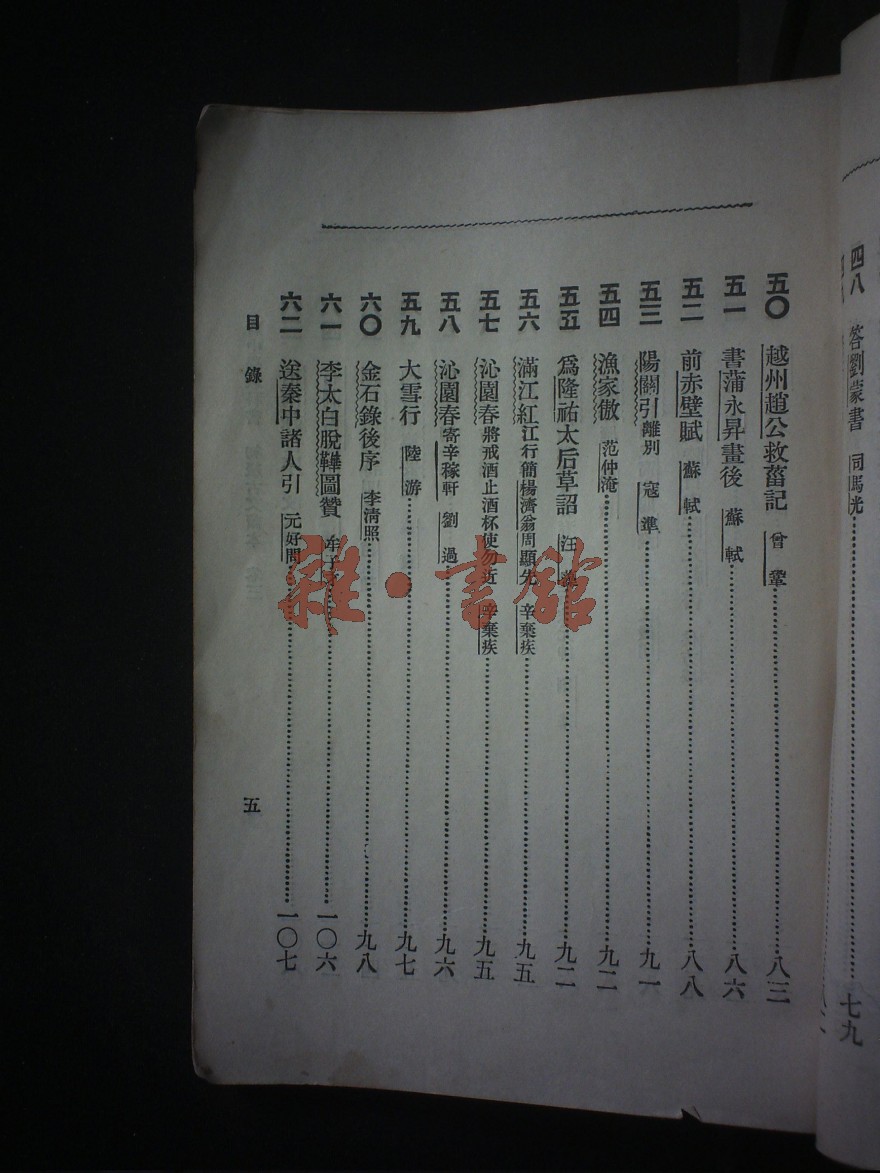 四八 答劉蒙書 司馬光 七九
五〇 越州趙公救菑記 曾鞏 八三
五一 書蒲永昇畫後 蘇軾 八六
五二 前赤壁賦 蘇軾 八八
五三 陽關引 離別 寇準 九一
五四 漁家傲 范仲淹 九二
五五 爲隆祐太后草詔 汪 九二
五六 滿江紅 江行簡楊濟翁周顯先 辛棄疾 九五
五七 沁園春 將戒酒止酒杯使勿近 辛棄疾 九五
五八 沁園春 寄辛稼軒 劉過 九六
五九 大雪行 陸游 九七
六〇 金石錄後序 李清照 九八
六一 李太白脫鞾圖贊 牟子 一〇六
六二 送秦中諸人引 元好問 一〇七
目錄 五
雜·書館